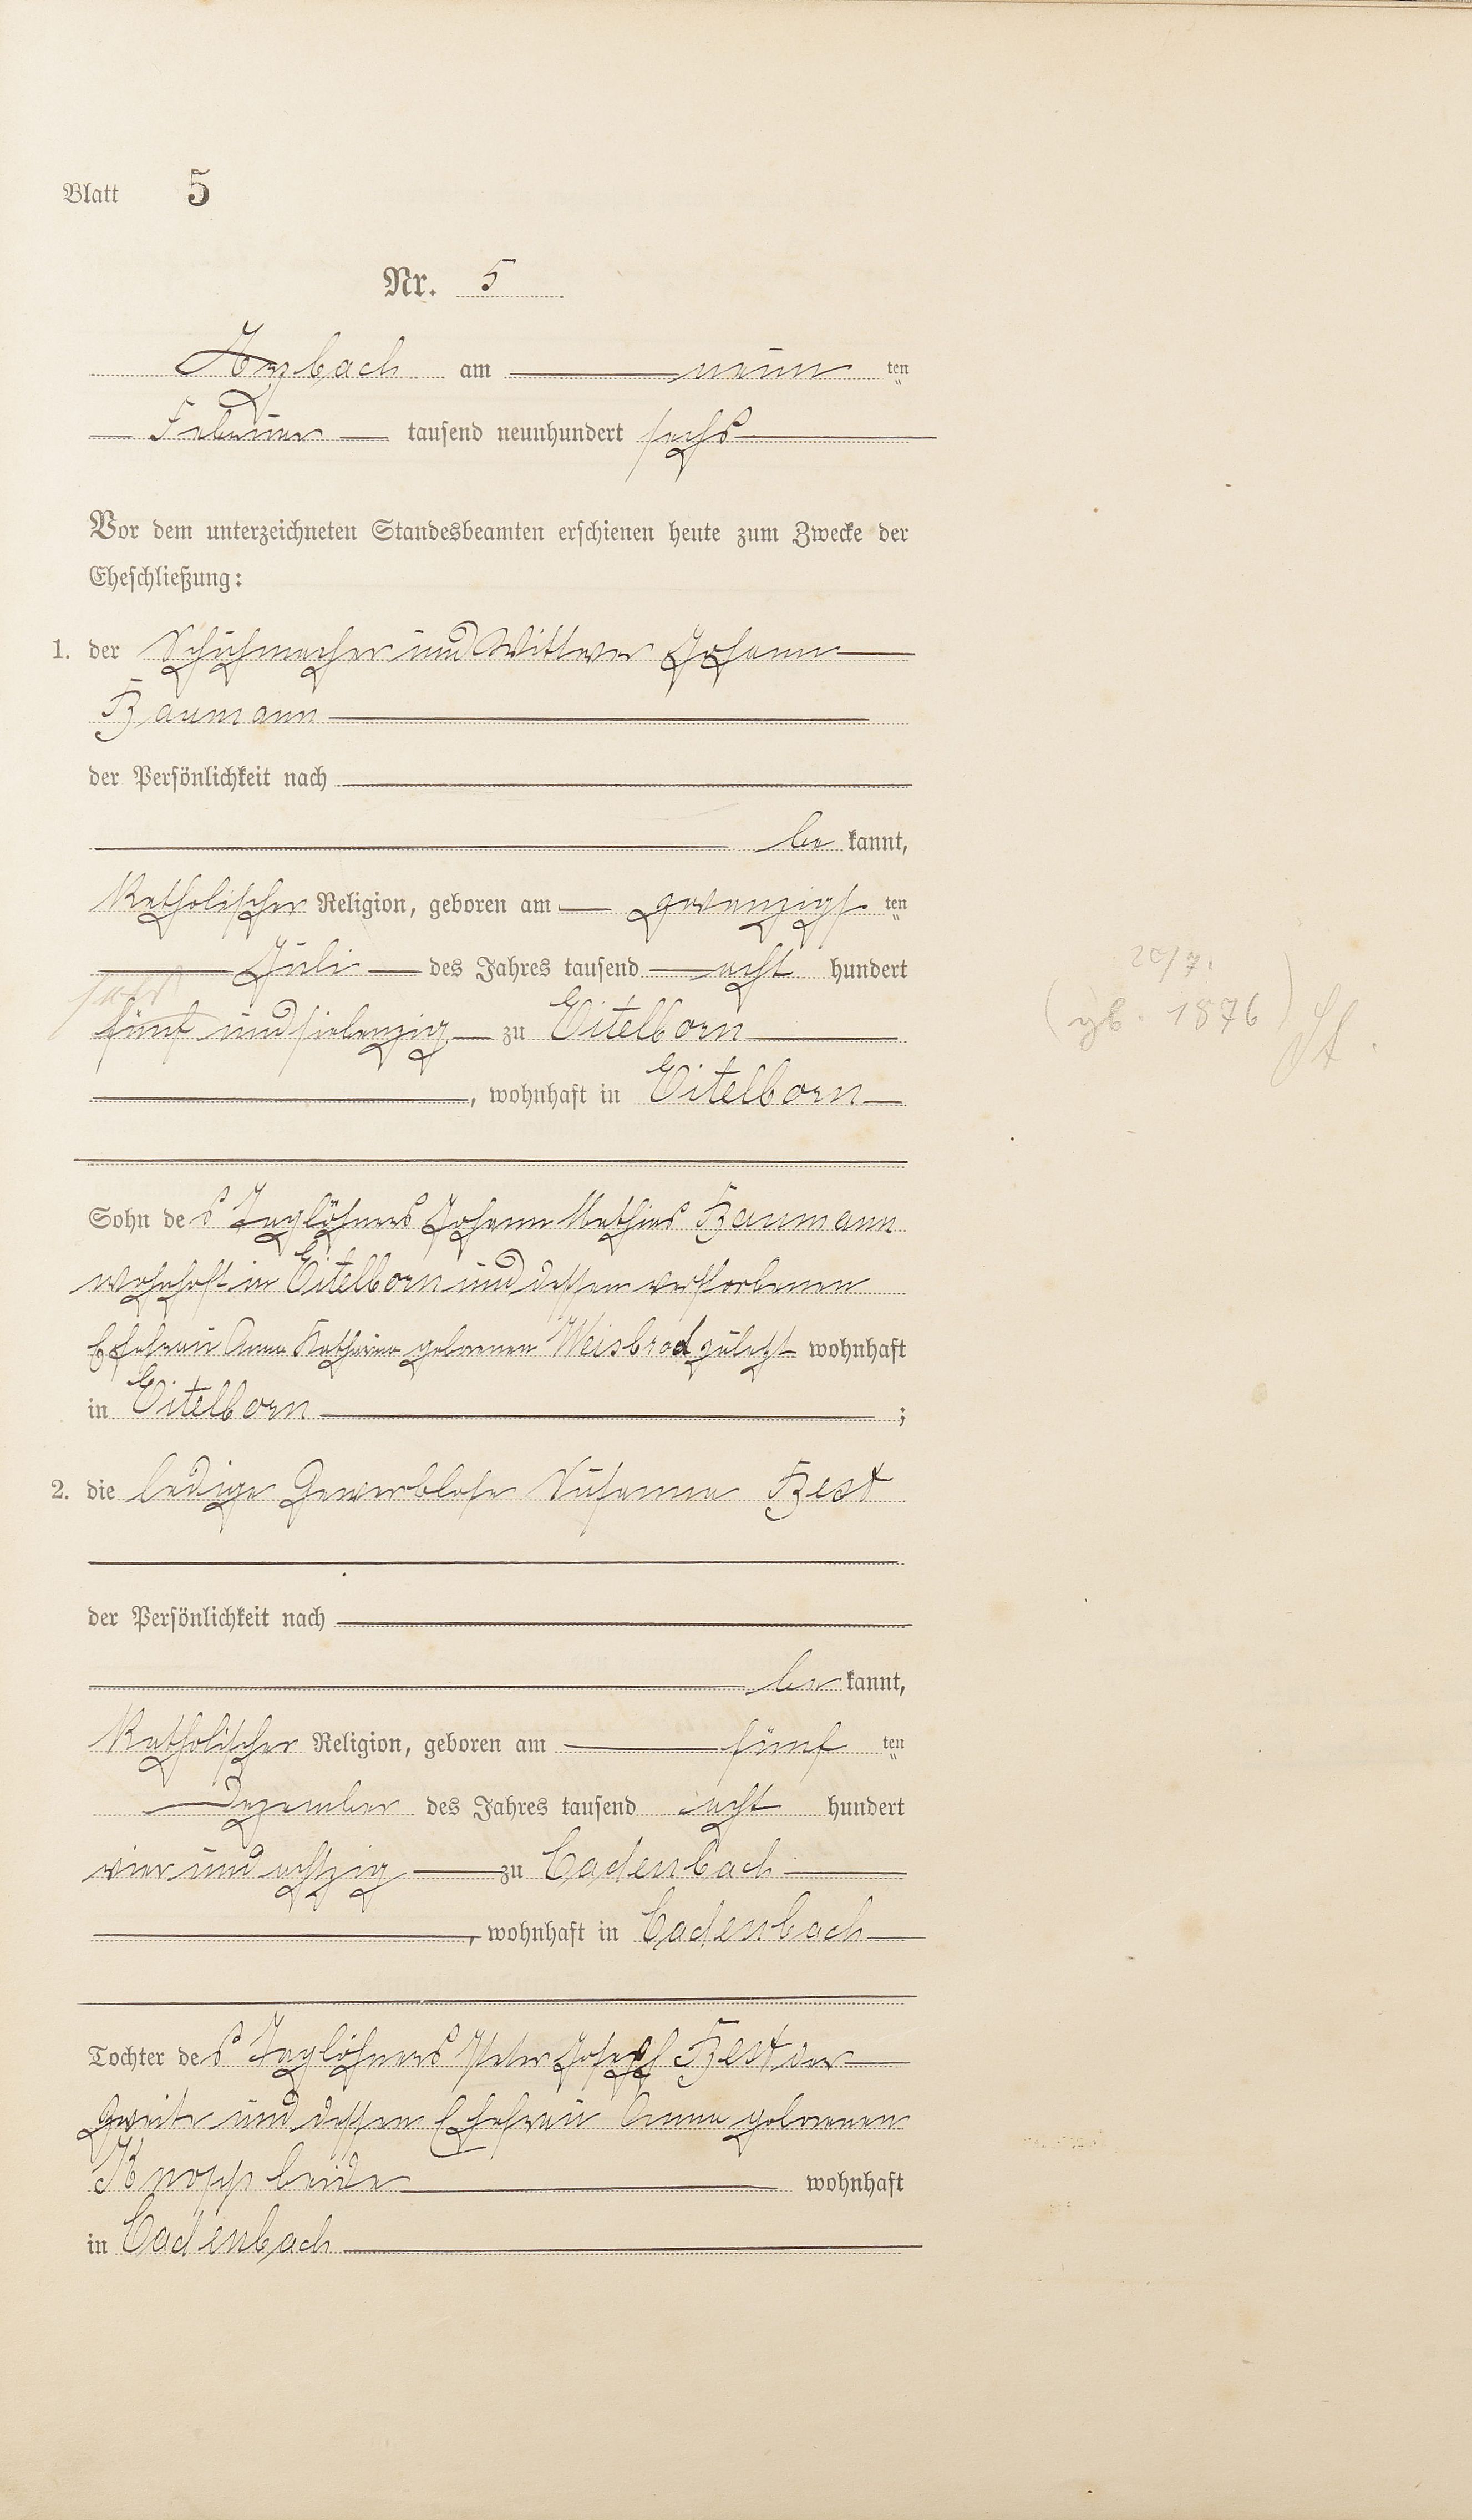 Blatt 5
Nr. 5
Arzbach am neun ten
Februar tausend neunhundert sechs
Vor dem unterzeichneten Standesbeamten erschienen heute zum Zwecke der
Eheschließung:
1. der Schuhmacher und Wittwer Johann
Baumann
der Persönlichkeit nach
be kannt,
katholischer Religion, geboren am zwanzigs ten
Juli des Jahres tausend acht hundert
sechs
fünf und siebenzig zu Eitelborn
20/7.
(gb. 1876)
, wohnhaft in Eitelborn
Sohn des Taglöhners Johann Mathias Baumann
wohnhaft in Eitelborn und dessen verstorbenen
Ehefrau Anna Katharina geborenen Weisbrod zuletzt wohnhaft
in Eitelborn ;
2. die ledige Gewerblose Susanna Best
der Persönlichkeit nach
be kannt,
katholischer Religion, geboren am fünf ten
Dezember des Jahres tausend acht hundert
vier und achtzig zu Cadenbach
, wohnhaft in Cadenbach
Tochter des Taglöhners Peter Josef Best der
Zweite und dessen Ehefrau Anna geborenen
Knopp beide wohnhaft
in Cadenbach